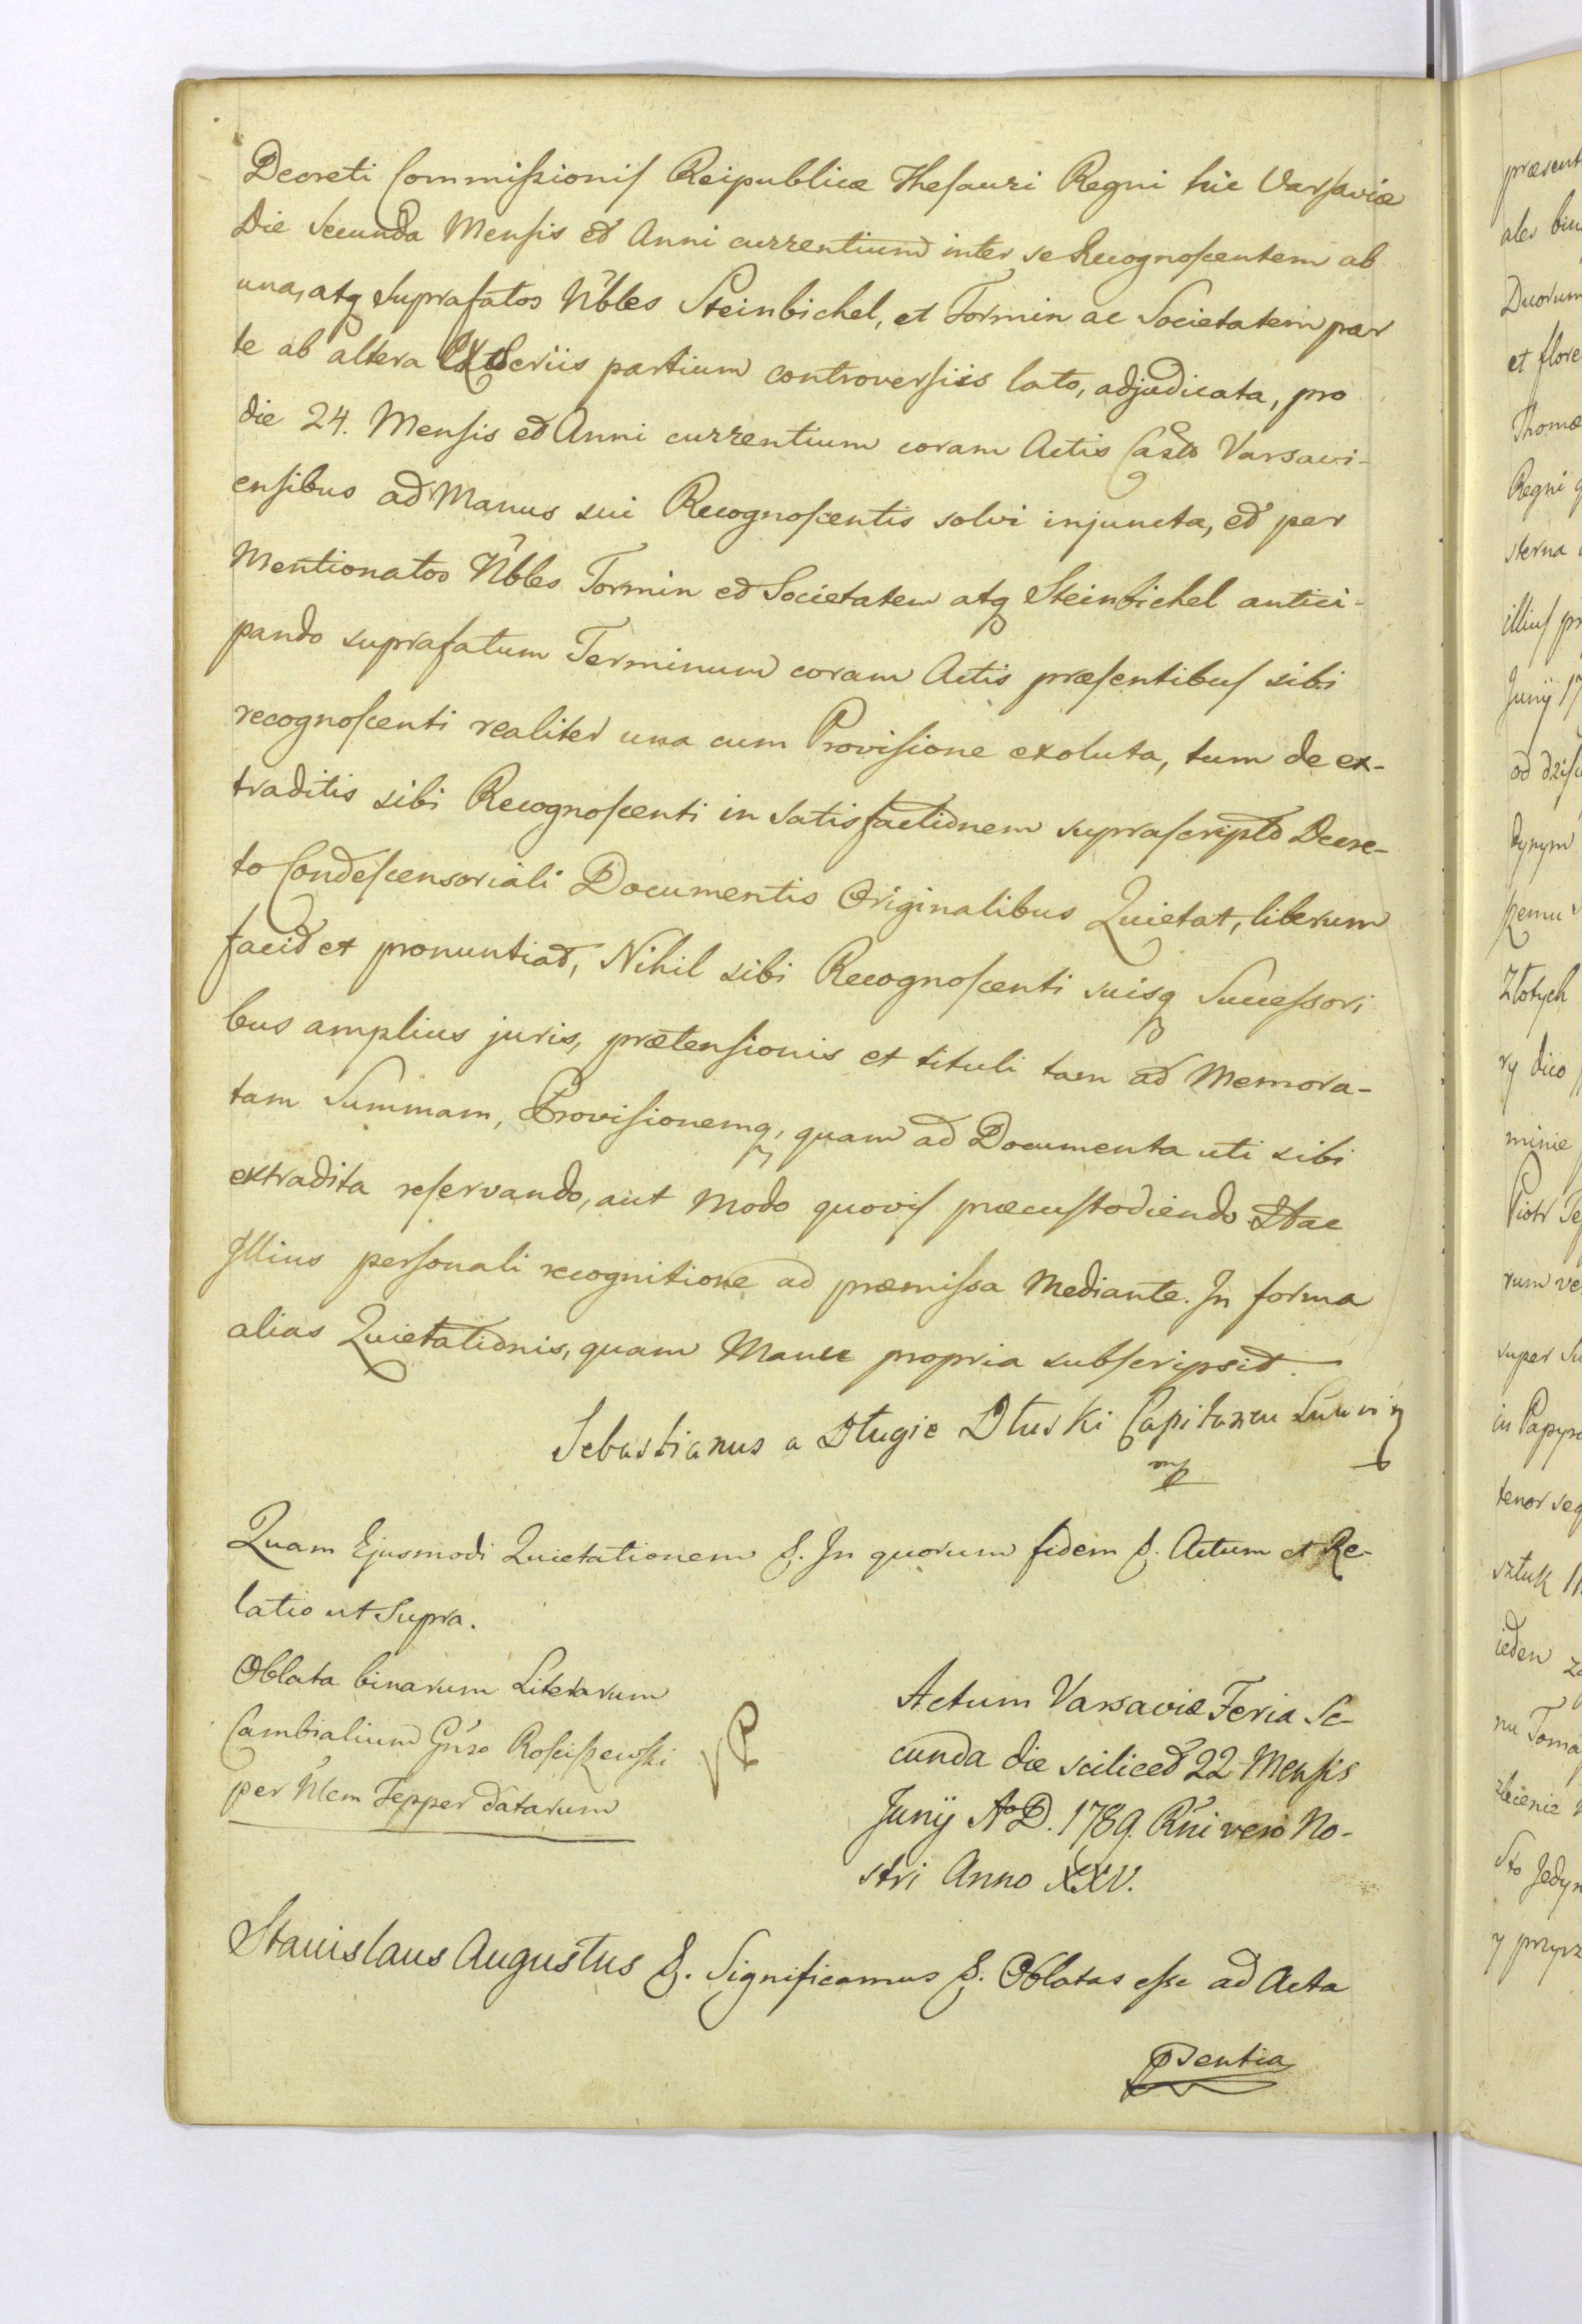 Decreti Commissionis Reipublicæ Thesauri Regni hic Varsaviæ
Die Secunda Mensis et Anni currentium inter se Recognoscentem ab
una, atq Suprafatos Nbles Steinbichel, et Formin ac Societatem par
te ab altera Ex Seriis partium controversiis lato, adjudicata, pro
die 24. Mensis et Anni currentium coram Actis Castr Varsavi-
ensibus ad Manus sui Recognoscentis solvi injuncta, et per
Mentionatos Nbles Formin et Societatem atq Steinbichel antici-
pando suprafatum Terminum coram Actis præsentibus sibi
recognoscenti realiter una cum Provisione exoluta, tum de ex-
traditis sibi Recognoscenti in Satisfactionem suprascripto Decre-
to Condescensoriali Documentis Originalibus Quietat, liberum
facit et pronuntiat, Nihil sibi Recognoscenti suisq Successori
bus amplius juris, prætensionis et tituli tam ad Memora-
tam Summam, Provisionemq, quam ad Documenta uti sibi
extradita reservando, aut Modo quovis præcustodiendo Hac
Illius personali recognitione ad præmissa Mediante. In forma
alias Quietationis, quam Manu propria subscripsit.
Sebastianus a Długie Dłuski
mp
Quam Ejusmodi Quietationem &. In quorum fidem &. Actum et Re-
latio ut Supra.
Oblata binarum Literarum
Cambialium Gnso Rosciszewski
per Nlem Tepper datarum
Actum Varsaviæ Feria Se-
cunda die scilicet 22 Mensis
Junij A D. 1789. Rni vero No-
stri Anno XXV.
Stanislaus Augustus &. Significamus &. Oblatas esse ad Acta
psentia
præsent
Duorum
et flore
Thomæ
Regni
sterna
illius
Junij 17
od
Złotych
ry dico
minie
Piotr Te
rum ve
super
in Papyr
tenor seq
sztuk
ieden
nu Toma
zlecenie
Sto Jedyn
y przyrz